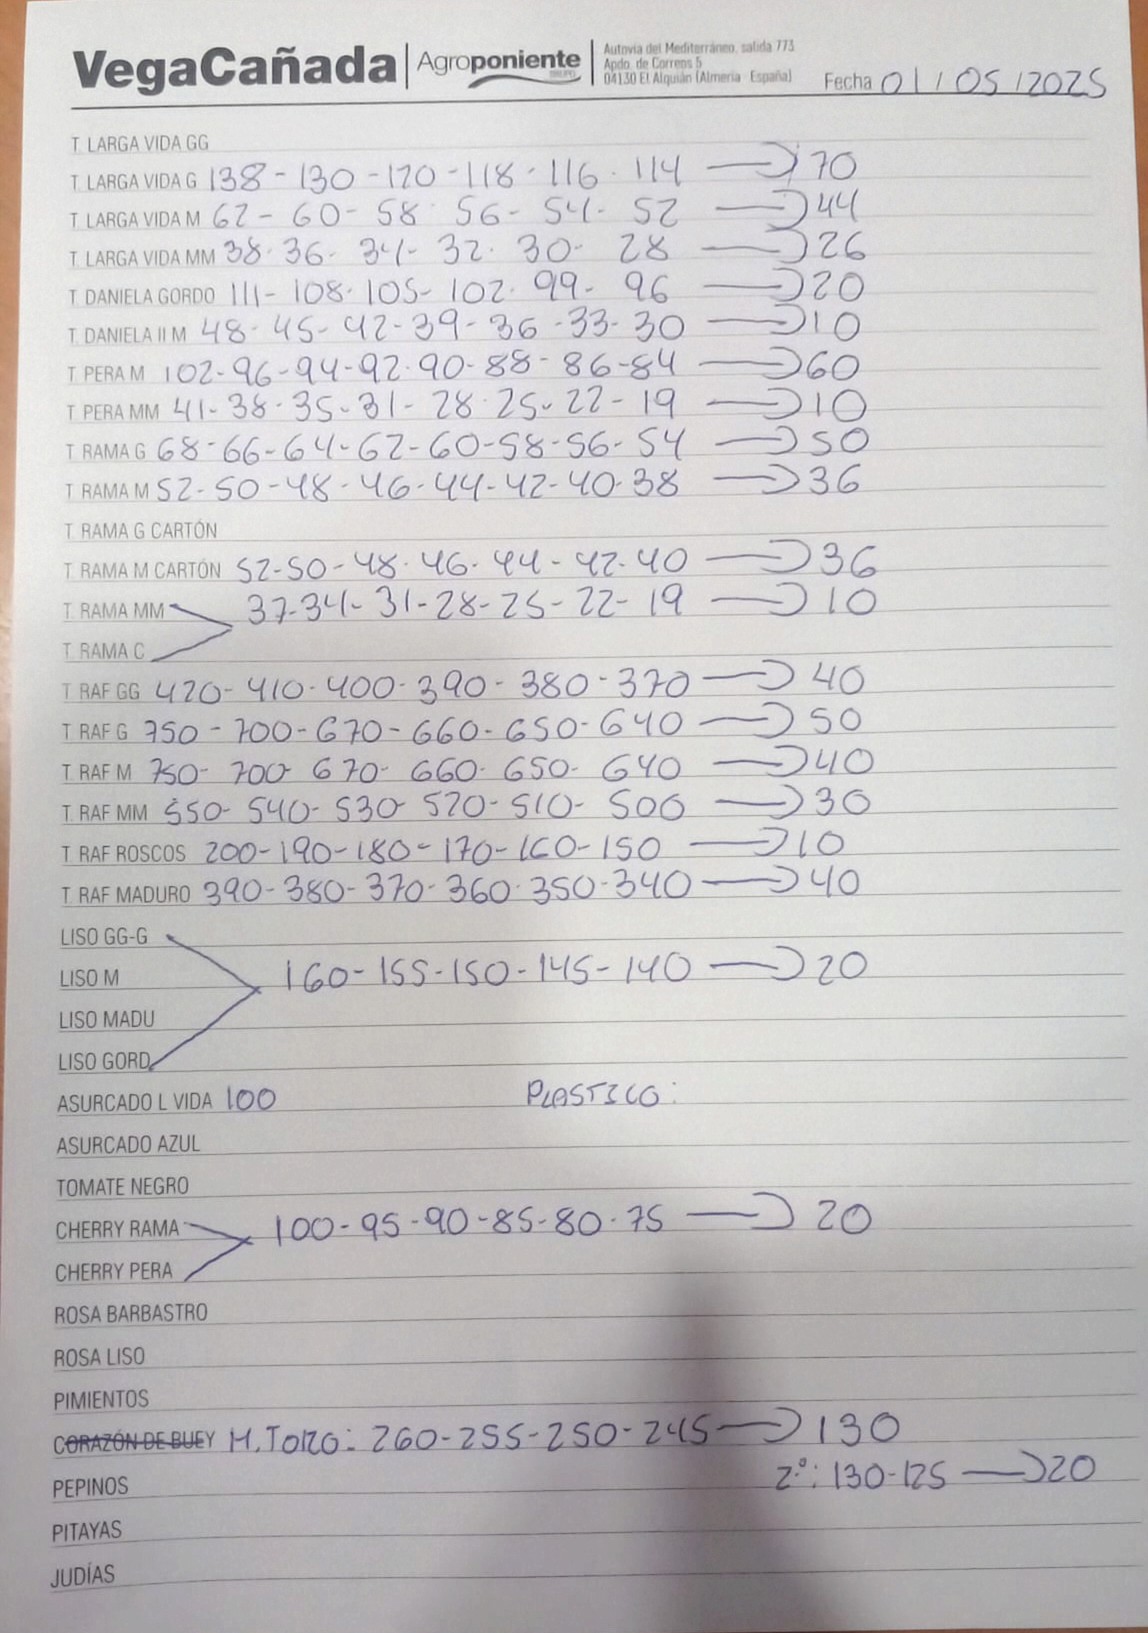 VegaCañada Agroponiente GRUPO
Autovía del Mediterráneo, salida 773
Apdo. de Correos 5
04130 El Alquián (Almería España)
Fecha 01/05/2025
T. LARGA VIDA GG
T. LARGA VIDA G 138-130-120-118-116-114 → 70
T. LARGA VIDA M 62-60-58 56-54-52 → 44
T. LARGA VIDA MM 38-36-34-32-30-28 → 26
T. DANIELA GORDO 111-108-105-102-99-96 → 20
T. DANIELA II M 48-45-42-39-36-33-30 → 10
T. PERA M 102-96-94-92-90-88-86-84 → 60
T. PERA MM 41-38-35-31-28-25-22-19 → 10
T. RAMA G 68-66-64-62-60-58-56-54 → 50
T. RAMA M 52-50-48-46-44-42-40-38 → 36
T. RAMA G CARTÓN
T. RAMA M CARTÓN 52-50-48-46-44-42-40 → 36
T. RAMA MM 37-34-31-28-25-22-19 → 10
T. RAMA C
T. RAF GG 420-410-400-390-380-370 → 40
T. RAF G 750-700-670-660-650-640 → 50
T. RAF M 750-700 670-660-650-640 → 40
T. RAF MM 550-540-530 520-510-500 → 30
T. RAF ROSCOS 200-190-180-170-160-150 → 10
T. RAF MADURO 390-380-370-360-350-340 → 40
LISO GG-G
LISO M 160-155-150-145-140 → 20
LISO MADU
LISO GORD
ASURCADO L VIDA 100 PLASTICO:
ASURCADO AZUL
TOMATE NEGRO
CHERRY RAMA 100-95-90-85-80-75 → 20
CHERRY PERA
ROSA BARBASTRO
ROSA LISO
PIMIENTOS
CORAZÓN DE BUEY M.TORO: 260-255-250-245 → 130
PEPINOS 2º: 130-125 → 20
PITAYAS
JUDÍAS